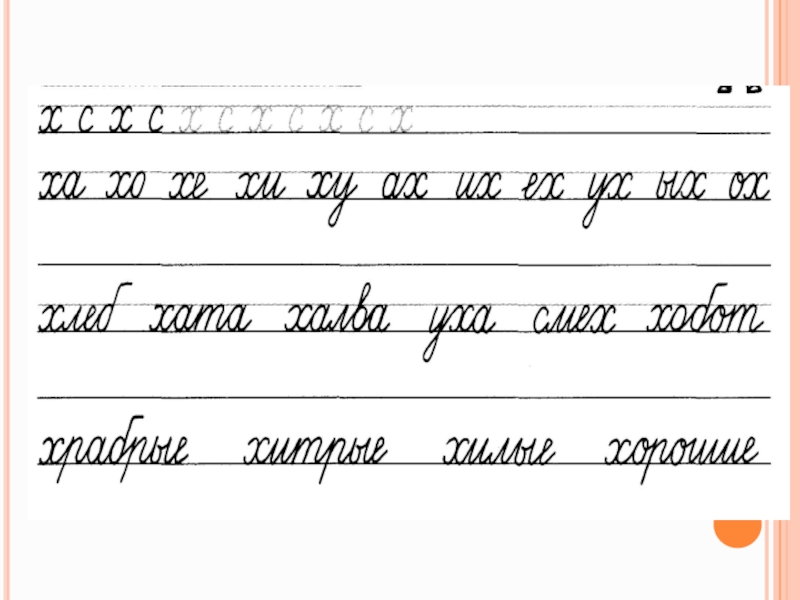 х с х с х с х с х с х
ха хо хе хи ху ах их ех ух ых ох
хлеб хата халва уха смех хобот
храбрые хитрые хилые хорошие